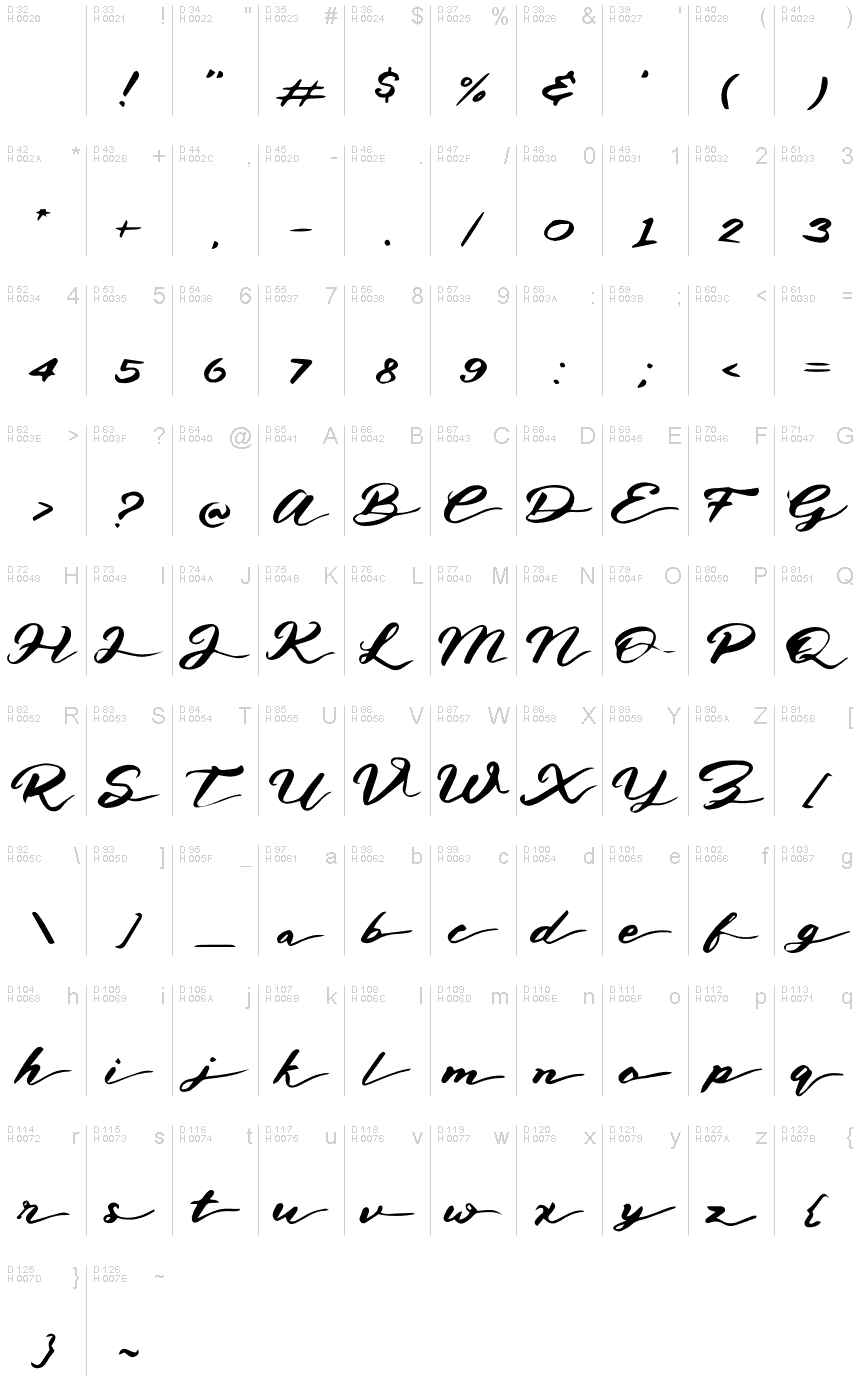 D 32 D 33 ! D 34 " D 35 # D 36 $ D 37 % D 38 & D 39 ' D 40 ( D 41 )
H 0020 H 0021 H 0022 H 0023 H 0024 H 0025 H 0026 H 0027 H 0028 H 0029
! " # $ % & ' ( )
D 42 * D 43 + D 44 , D 45 - D 46 . D 47 / D 48 0 D 49 1 D 50 2 D 51 3
H 002A H 002B H 002C H 002D H 002E H 002F H 0030 H 0031 H 0032 H 0033
* + , - . / 0 1 2 3
D 52 4 D 53 5 D 54 6 D 55 7 D 56 8 D 57 9 D 58 : D 59 ; D 60 < D 61 =
H 0034 H 0035 H 0036 H 0037 H 0038 H 0039 H 003A H 003B H 003C H 003D
4 5 6 7 8 9 : ; < =
D 62 > D 63 ? D 64 @ D 65 A D 66 B D 67 C D 68 D D 69 E D 70 F D 71 G
H 003E H 003F H 0040 H 0041 H 0042 H 0043 H 0044 H 0045 H 0046 H 0047
> ? @ A B C D E F G
D 72 H D 73 I D 74 J D 75 K D 76 L D 77 M D 78 N D 79 O D 80 P D 81 Q
H 0048 H 0049 H 004A H 004B H 004C H 004D H 004E H 004F H 0050 H 0051
H I J K L M N O P Q
D 82 R D 83 S D 84 T D 85 U D 86 V D 87 W D 88 X D 89 Y D 90 Z D 91 [
H 0052 H 0053 H 0054 H 0055 H 0056 H 0057 H 0058 H 0059 H 005A H 005B
R S T U V W X Y Z [
D 92 \ D 93 ] D 95 _ D 97 a D 98 b D 99 c D 100 d D 101 e D 102 f D 103 g
H 005C H 005D H 005F H 0061 H 0062 H 0063 H 0064 H 0065 H 0066 H 0067
\ ] _ a b c d e f g
D 104 h D 105 i D 106 j D 107 k D 108 l D 109 m D 110 n D 111 o D 112 p D 113 q
H 0068 H 0069 H 006A H 006B H 006C H 006D H 006E H 006F H 0070 H 0071
h i j k l m n o p q
D 114 r D 115 s D 116 t D 117 u D 118 v D 119 w D 120 x D 121 y D 122 z D 123 {
H 0072 H 0073 H 0074 H 0075 H 0076 H 0077 H 0078 H 0079 H 007A H 007B
r s t u v w x y z {
D 125 } D 126 ~
H 007D H 007E
} ~